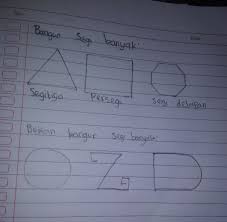 Bangun Segi banyak:
Segitiga Persegi Segi delapan
Bukan bangun segi banyak: